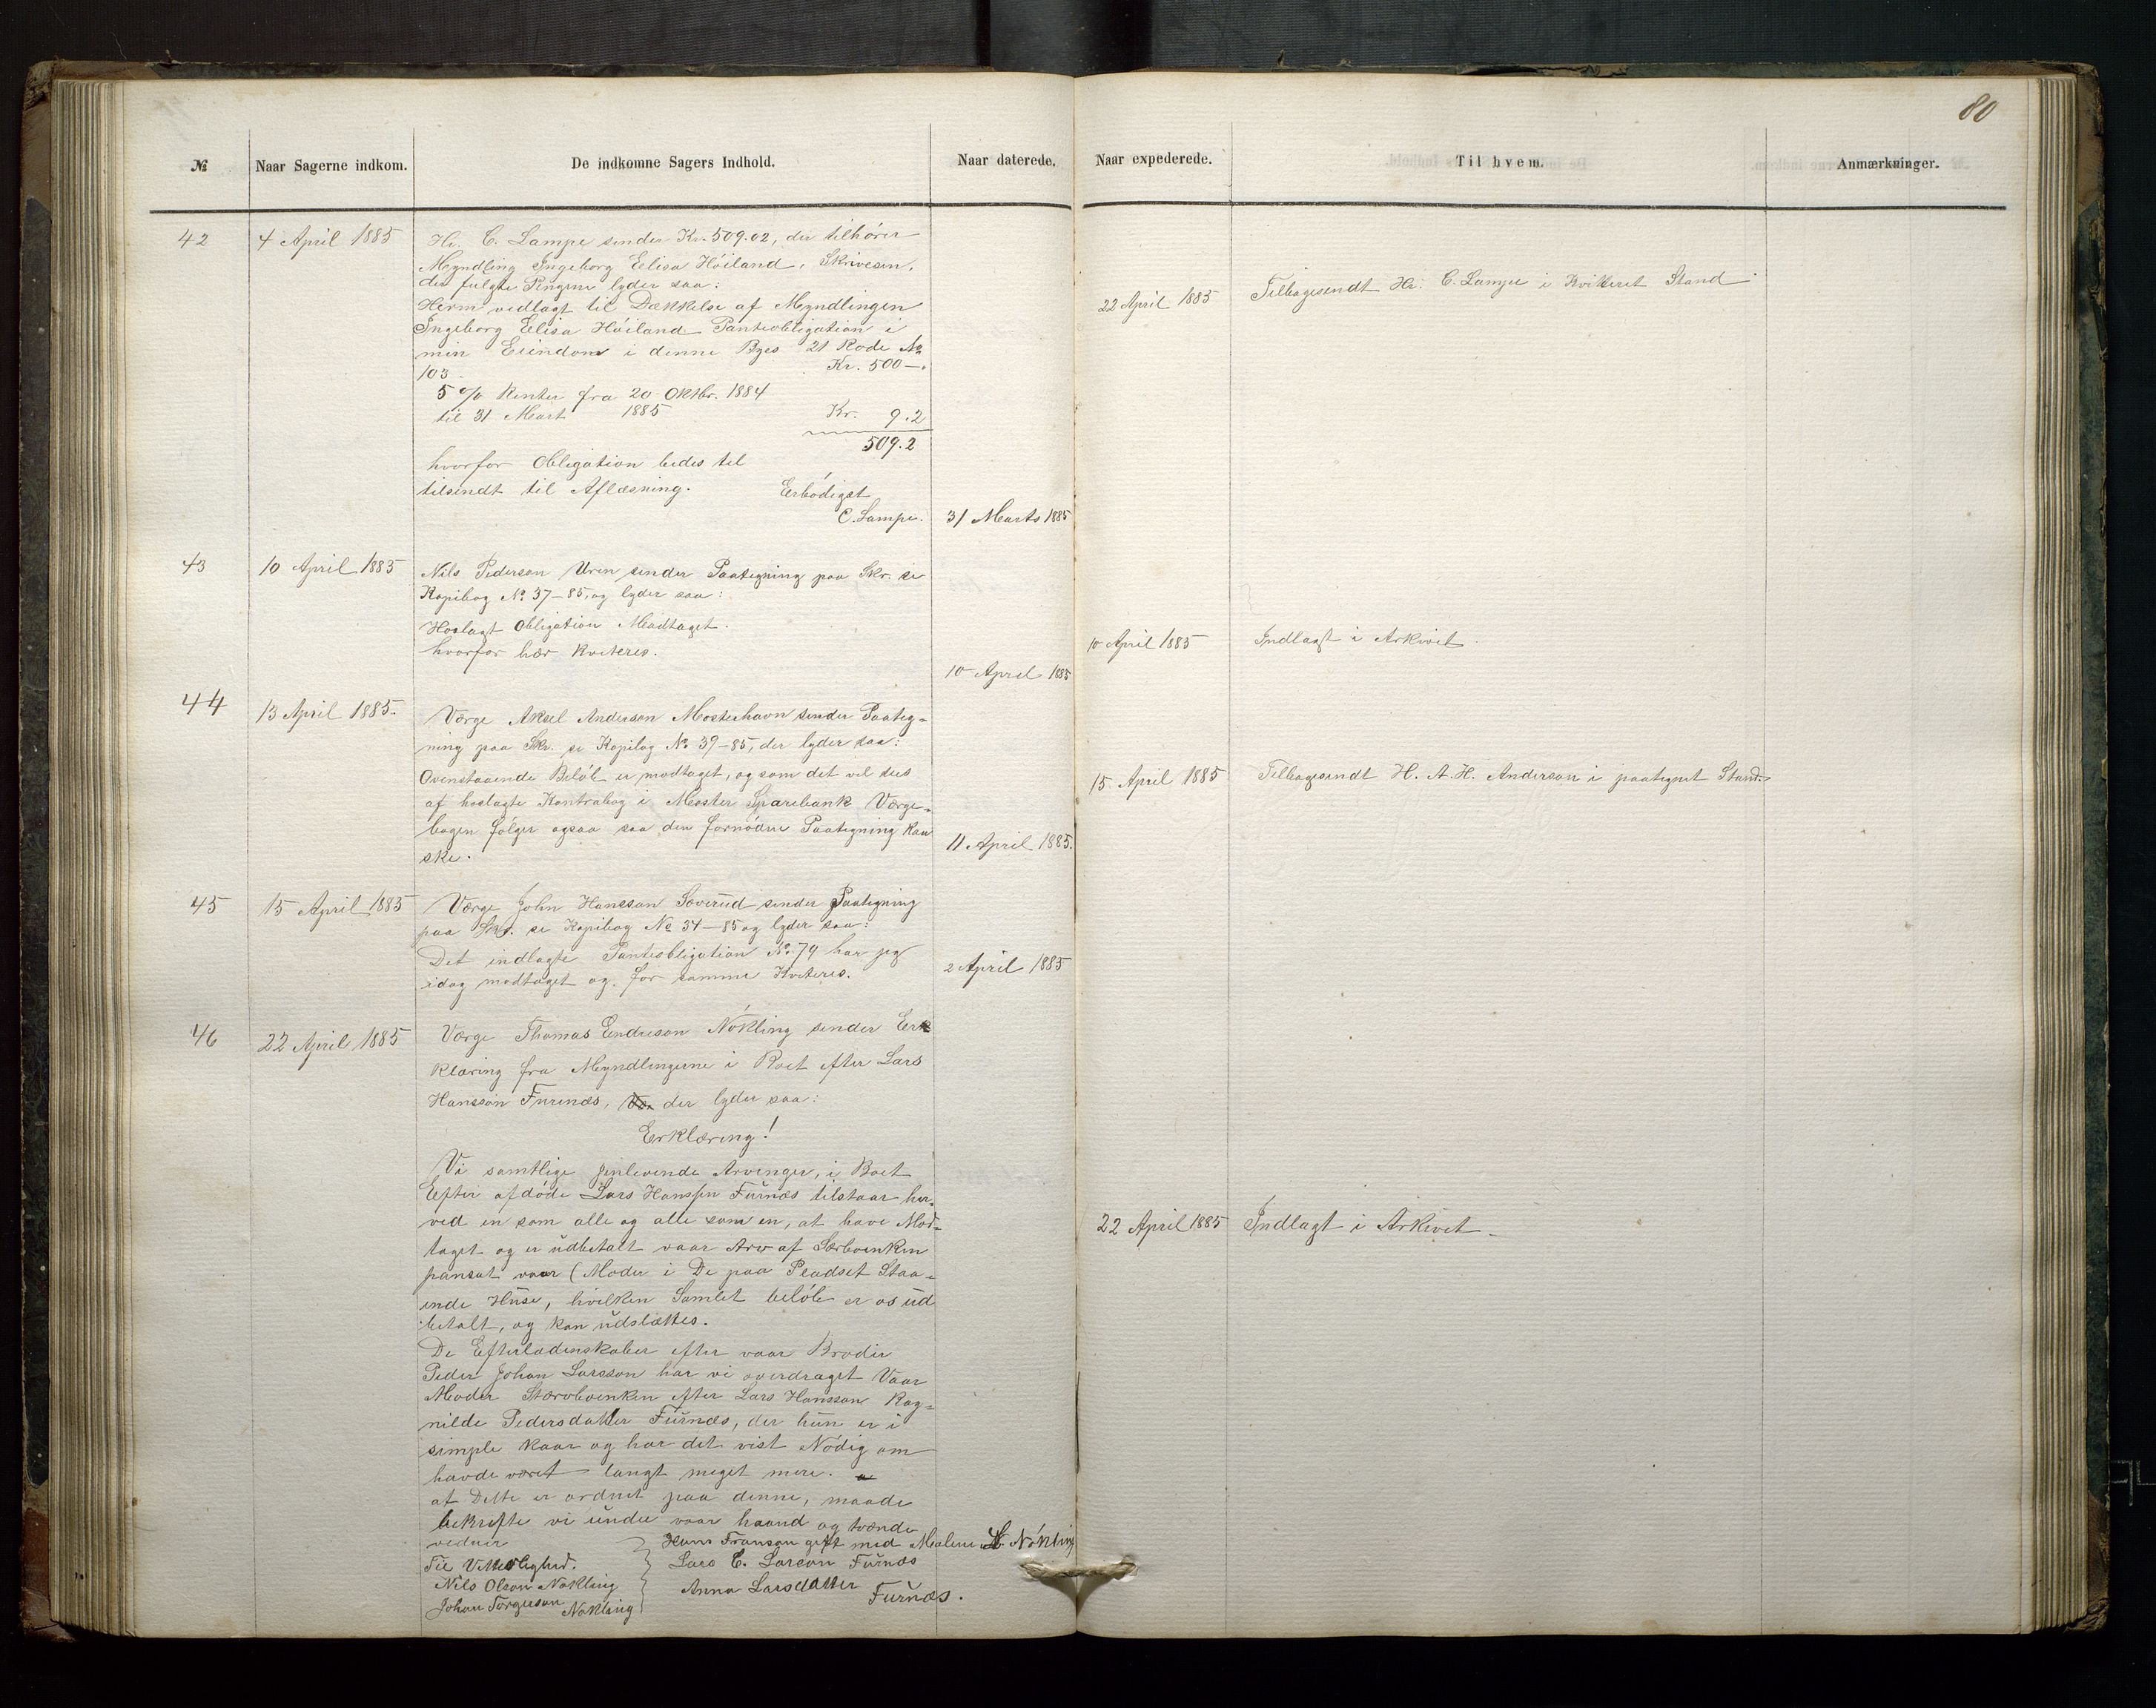 80
№ Naar Sagerne indkom. De indkomne Sagers Indhold. Naar daterede. Naar expederede. Til hvem. Anmærkninger.
42 4 April 1885 Hr. C. Lampe sender Kr. 509.02, der tilhörer
Myndling Ingeborg Elisa Höiland. Skrivesen,
der fulgte Pengene lyder saa:
Herm vedlagt til Dækkelse af Myndlingen
Ingeborg Elisa Höiland Panteobligation i
min Eiendom i denne Byes 21 Rode №
103. Kr. 500—.
5 % Renter fra 20 Oktbr. 1884
til 31 Mart 1885 Kr. 9.2
509.2
hvorfor Obligation bedes til
tilsendt til Aflæsning. Erbödigst
C. Lampe. 31 Marts 1885
22 April 1885 Tilbagesendt Hr. C. Lampe i Kvitteret Stand
43 10 April 1885 Nils Pederson Uren sender Paategning paa Skr. se
Kopibog № 37–85, og lyder saa:
Hoslagt Obligation Modtaget.
hvorfor hær kviteres.
10 April 1885
10 April 1885 Indlagt i Arkivet.
44 13 April 1885. Værge Aksel Anderson Mosterhavn sender Paateg-
ning paa Skr. se Kopibog № 39–85, der lyder saa:
Ovenstaaende Belöb er modtaget, og som det vil sees
af hoslagte Kontrabog i Moster Sparebank Værge-
bogen fölger ogsaa saa den fornödne Paategning kan
ske.
11 April 1885.
15 April 1885 Tilbagesendt H. A. H. Anderson i paategnet Stand.
45 15 April 1885 Værge John Hansson Søverud sender Paategning
paa Skr. se Kopibog № 34–85 og lyder saa:
Det indlagte Panteobligation №. 79 har jeg
idag modtaget og for samme Kviteres.
2 April 1885
46 22 April 1885 Værge Thomas Endreson Nökling sender Erk
klæring fra Myndlingerne i Boet efter Lars
Hansson Furenæs, der lyder saa:
Erklæring!
Vi samtlige jenlevende Arvinger, i Boet
Efter afdöde Lars Hanssen Furnæs tilstaar her-
ved en som alle og alle som en, at have Mod-
taget og er udbetalt vaar Arv af
vaar (Moder i De paa Pladset Staa-
ende Huse, hvilken Samlet belöb er os ud
betalt, og kan udslættes.
De Efterladenskaber efter vaar Brodir
Peder Johan Larsson har vi overdraget Vaar
Moder efter Lars Hansson Rag-
nilde Pedersdatter Furnæs, der hun er i
simple kaar og har det vist Nödig om
havde været langt meget mere.
at Dette er ordnet paa denne, maade
bekræfte vi under vaar haand og tvende
vedner
Til Vitterlighed.
Nils Olson Nokling
Johan Torgerson Nokling
Hans Franson gift med Malene L. Nökling
Lars E. Larson Furnæs
Anna Larsdatter Furnæs.
22 April 1885 Indlagt i Arkivet.